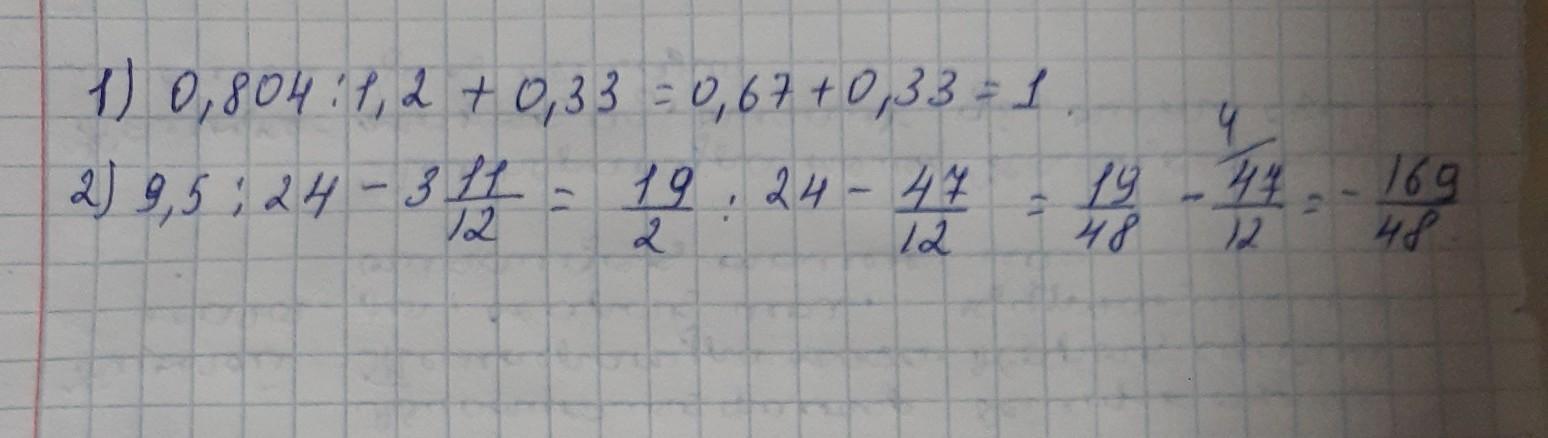 1) 0,804 : 1,2 + 0,33 = 0,67 + 0,33 = 1.
2) 9,5 : 24 - 3 11/12 = 19/2 : 24 - 47/12 = 19/48 - 4/ 47/12 = - 169/48